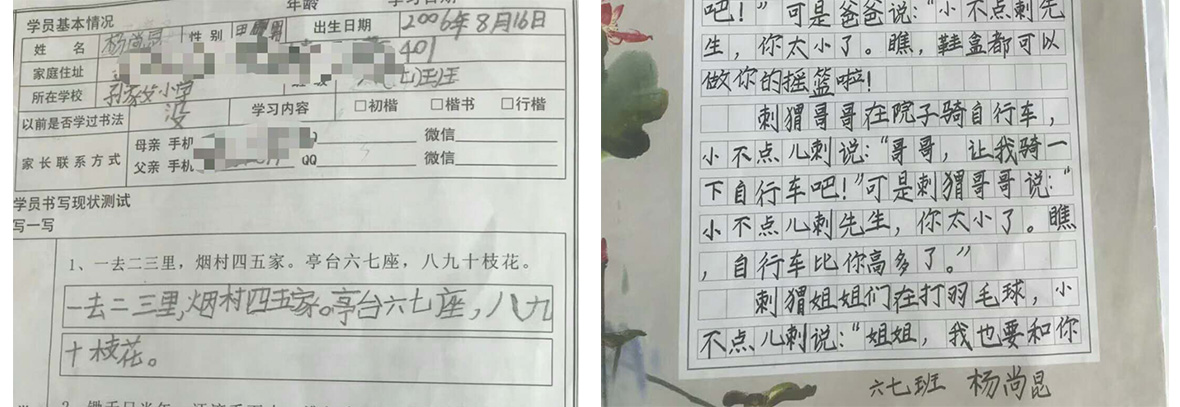 年龄
学员基本情况
姓 名 杨尚昆 性别 出生日期 2006年8月16日
家庭住址 401
所在学校 孙家坟小学
以前是否学过书法 没 学习内容 □初楷 □楷书 □行楷
家长联系方式
母亲 手机 QQ 微信
父亲 手机 QQ 微信
学员书写现状测试
写一写
1、一去二三里，烟村四五家。亭台六七座，八九十枝花。
一去二三里，烟村四五家。亭台六七座，八九
十枝花。
吧！”可是爸爸说：“小不点刺先
生，你太小了。瞧，鞋盒都可以
做你的摇篮啦！
刺猬哥哥在院子骑自行车，
小不点儿刺说：“哥哥，让我骑一
下自行车吧！”可是刺猬哥哥说：“
小不点儿刺先生，你太小了。瞧
，自行车比你高多了。”
刺猬姐姐们在打羽毛球，小
不点儿刺说：“姐姐，我也要和你
六七班 杨尚昆